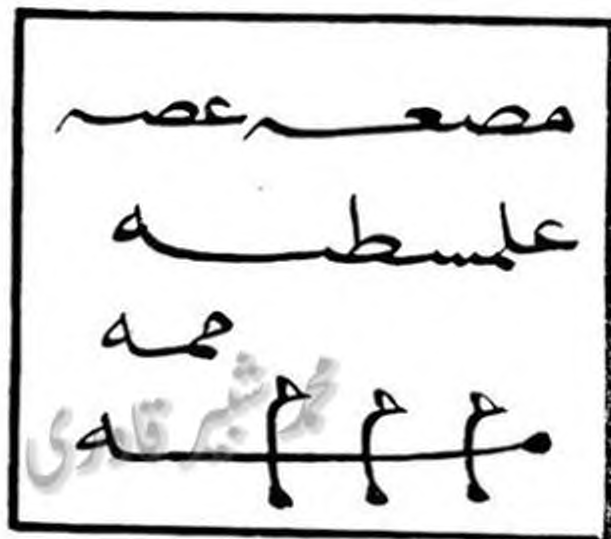 مصعہ عصہ
علمسطہ
حمہ
محمد شبیر قادری